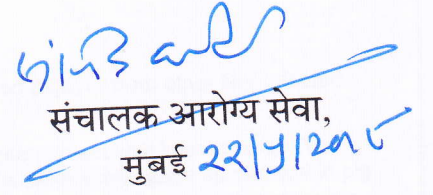 संचालक आरोग्य सेवा,
मुंबई २२/५/२०१८